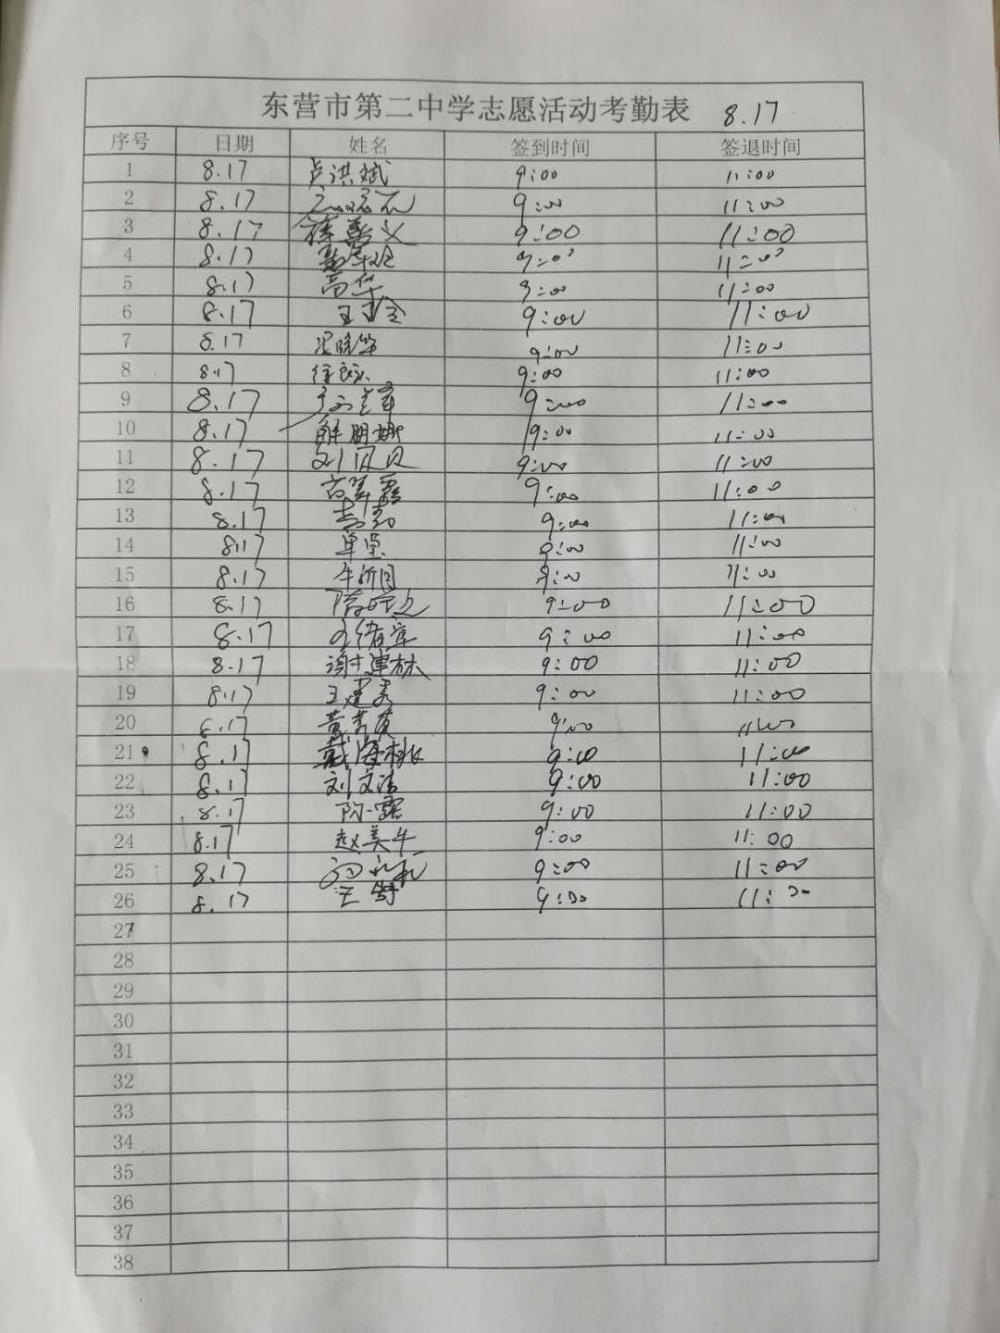 东营市第二中学志愿活动考勤表 8.17
序号 日期 姓名 签到时间 签退时间
1 8.17 卢洪斌 9:00 11:00
2 8.17 9:00 11:00
3 8.17 9:00 11:00
4 8.17 9:00 11:00
5 8.17 高华 9:00 11:00
6 8.17 9:00 11:00
7 8.17 9:00 11:00
8 8.17 9:00 11:00
9 8.17 9:00 11:00
10 8.17 解朋娜 9:00 11:00
11 8.17 刘贝贝 9:00 11:00
12 8.17 9:00 11:00
13 8.17 9:00 11:00
14 8.17 9:00 11:00
15 8.17 9:00 11:00
16 8.17 9:00 11:00
17 8.17 9:00 11:00
18 8.17 谢建林 9:00 11:00
19 8.17 9:00 11:00
20 8.17 9:00 11:00
21 8.17 戴海桃 9:00 11:00
22 8.17 刘文洁 9:00 11:00
23 8.17 9:00 11:00
24 8.17 赵美华 9:00 11:00
25 8.17 9:00 11:00
26 8.17 9:00 11:00
27
28
29
30
31
32
33
34
35
36
37
38